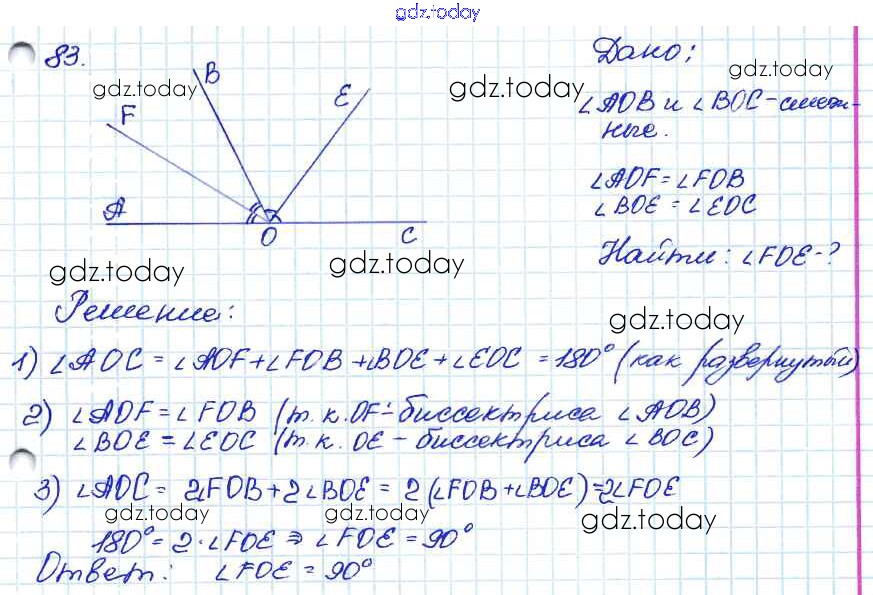 gdz.today
83.
Дано:
B
gdz.today
E
gdz.today
gdz.today
F
∠AOB и ∠BOC - смеж-
ные.
∠AOF = ∠FOB
A
∠BOE = ∠EOC
O
C
Найти: ∠FOE - ?
gdz.today
gdz.today
Решение:
gdz.today
1) ∠AOC = ∠AOF + ∠FOB + ∠BOE + ∠EOC = 180° (как развернутый)
2) ∠AOF = ∠FOB (т.к. OF - биссектриса ∠AOB)
∠BOE = ∠EOC (т.к. OE - биссектриса ∠BOC)
3) ∠AOC = 2∠FOB + 2∠BOE = 2(∠FOB + ∠BOE) = 2∠FOE
gdz.today
gdz.today
gdz.today
180° = 2·∠FOE ⇒ ∠FOE = 90°
Ответ: ∠FOE = 90°